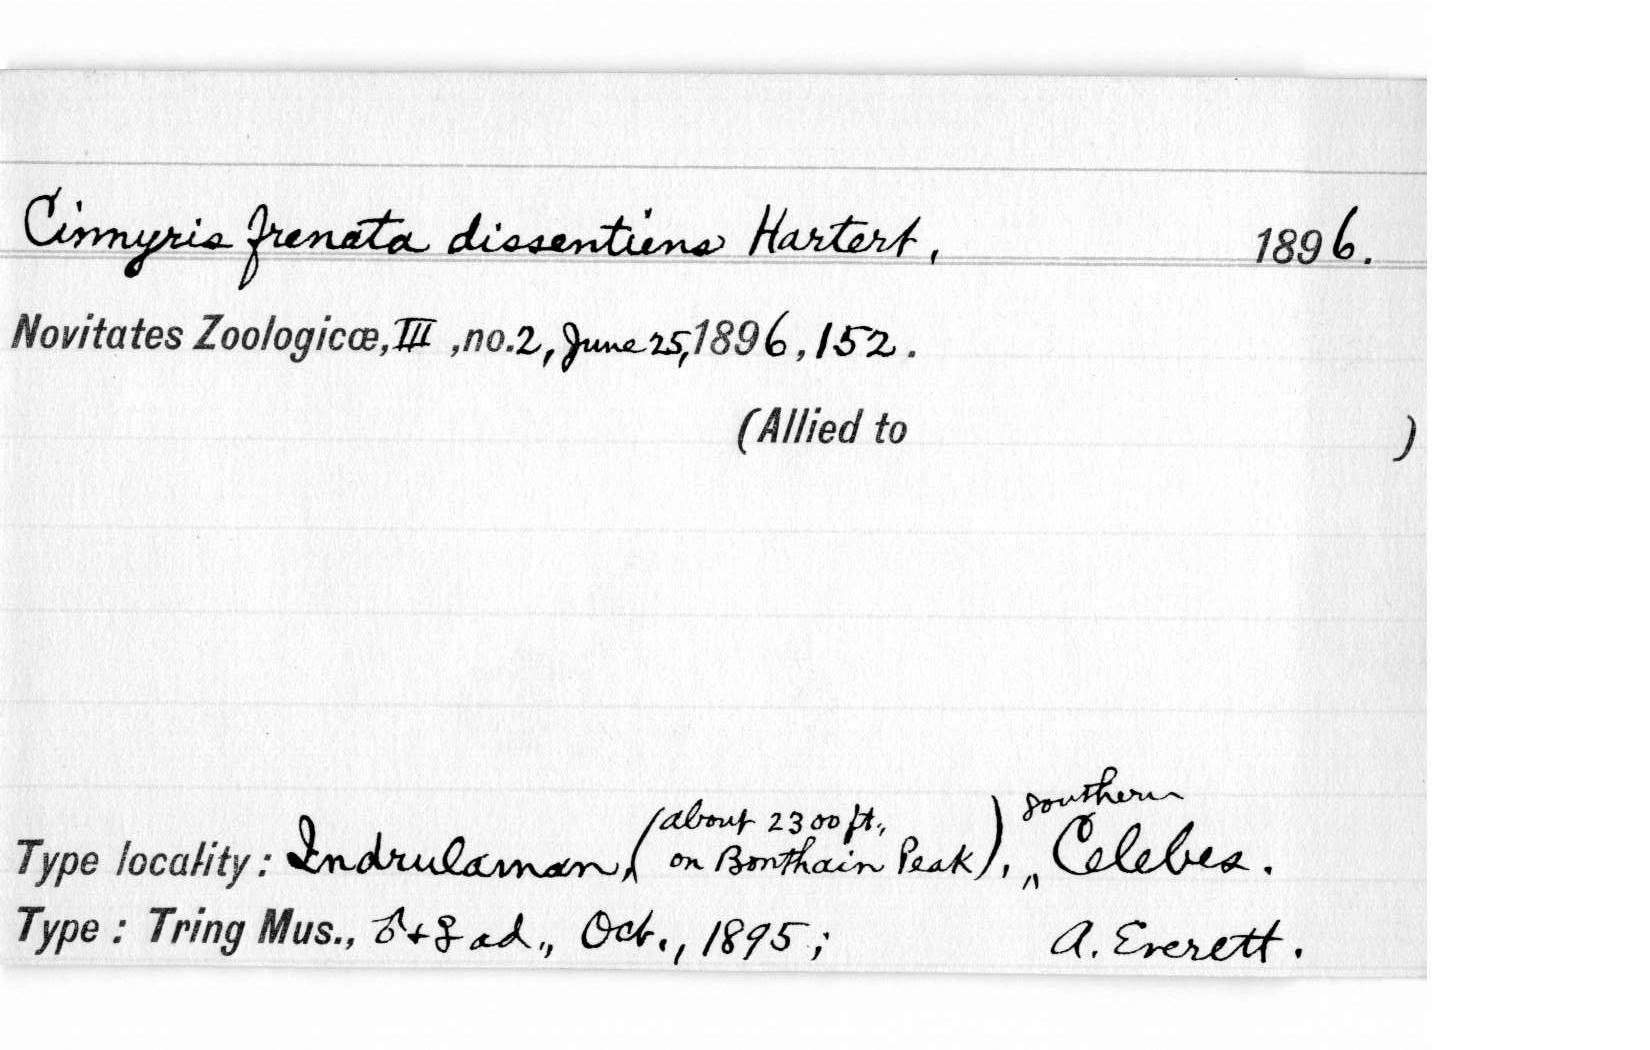 Cinnyris frenata dissentiens Hartert, 1896.
Novitates Zoologicæ, III, no. 2, June 25, 1896, 152.
(Allied to )
southern
(about 2300 ft.,
Type locality: Indrulaman, on Bonthain Peak), „ Celebes.
Type: Tring Mus., ♂+♀ ad., Oct., 1895; A. Everett.